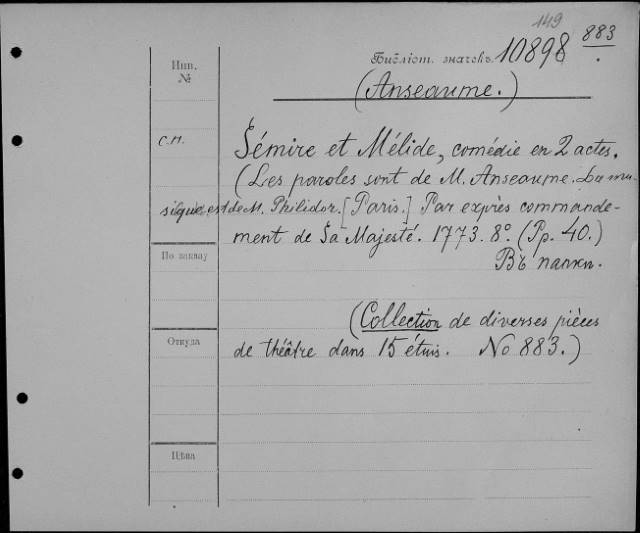 149
883
Библіот. значекъ. 10898
Инв.
№
(Anseaume.)
С.П.
Sémire et Mélide, comédie en 2 actes.
(Les paroles sont de M. Anseaume. La mu-
sique est de M. Philidor. [Paris.] Par exprès commande-
ment de Sa Majesté. 1773. 8º. (Pp. 40.)
Въ папки.
По заказу
(Collection de diverses pièces
Откуда
de théâtre dans 15 étuis. No 883.)
Цѣна